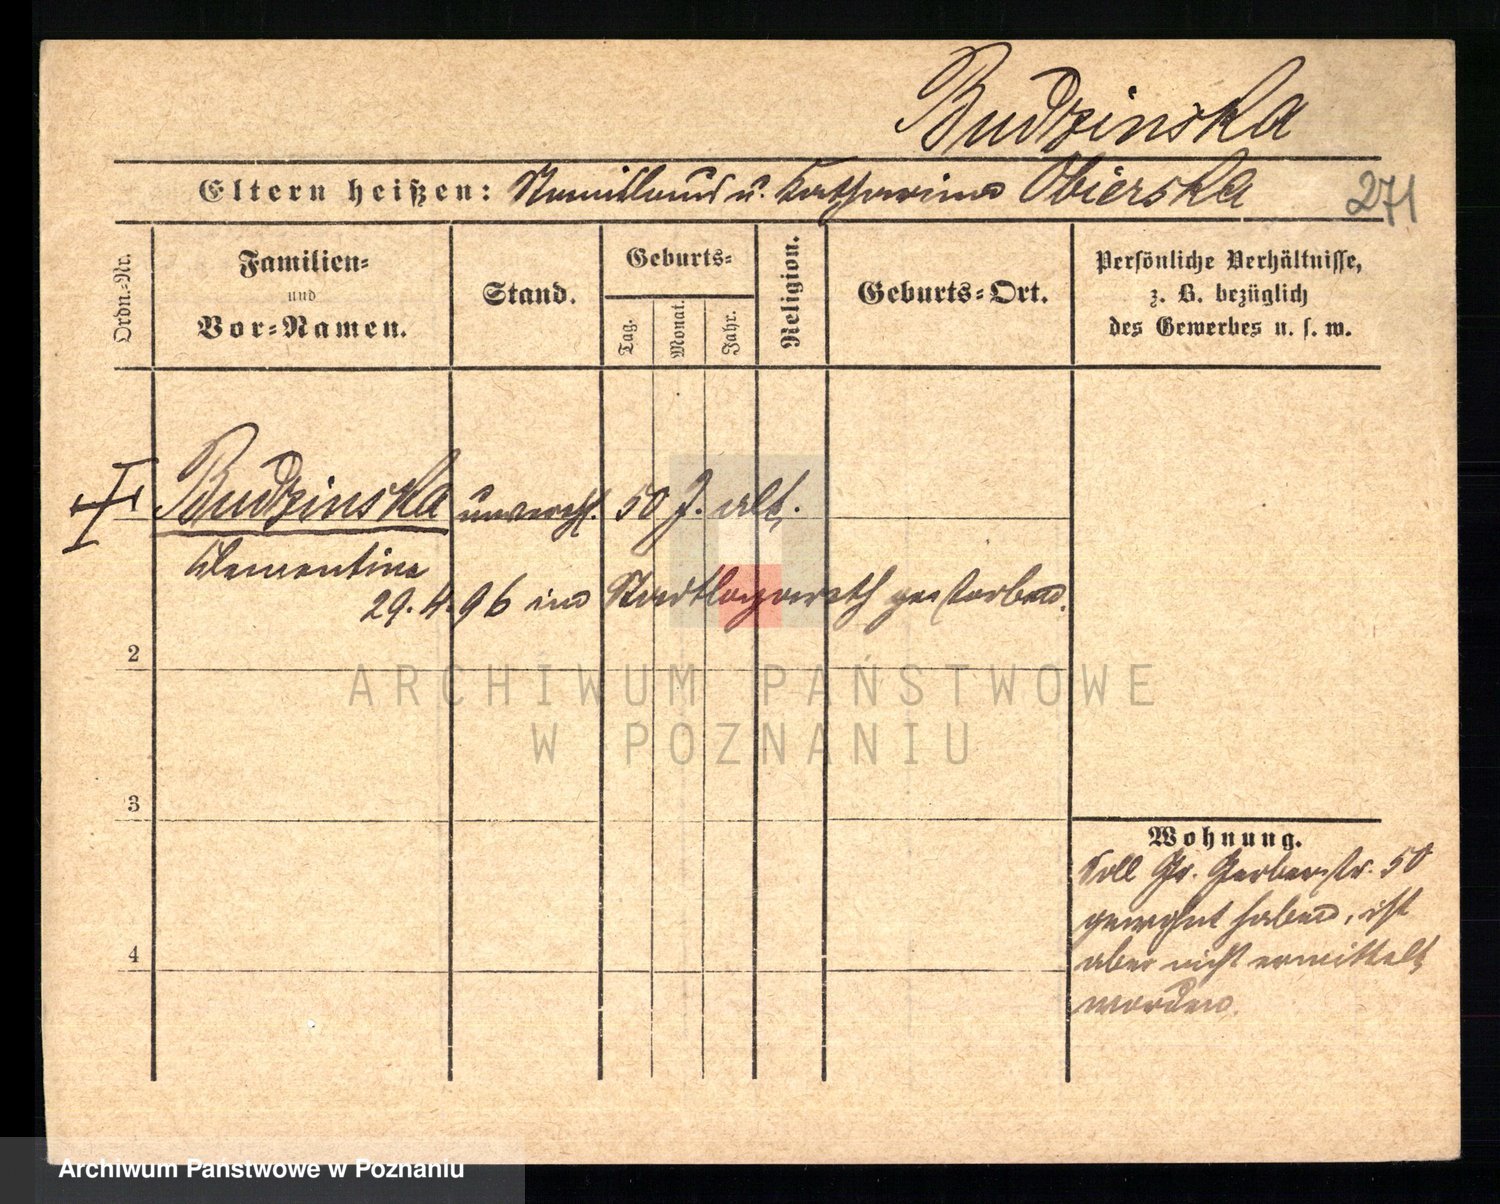 Budzinska
Eltern heißen: Stanislaus u. Katharina Obierska
271
Ordn.-Nr.
Familien-
und
Vor-Namen.
Stand.
Geburts-
Tag.
Monat.
Jahr.
Religion.
Geburts-Ort.
Persönliche Verhältnisse,
z. B. bezüglich
des Gewerbes u. s. w.
Budzinska unvereh. 50 J. alt.
Clementine
29.4.96 im Stadtlazareth gestorben.
2
ARCHIWUM PAŃSTWOWE
W POZNANIU
3
Wohnung.
Soll Gr. Gerberstr. 50
gewohnt haben, ist
aber nicht ermittelt
worden.
4
Archiwum Państwowe w Poznaniu